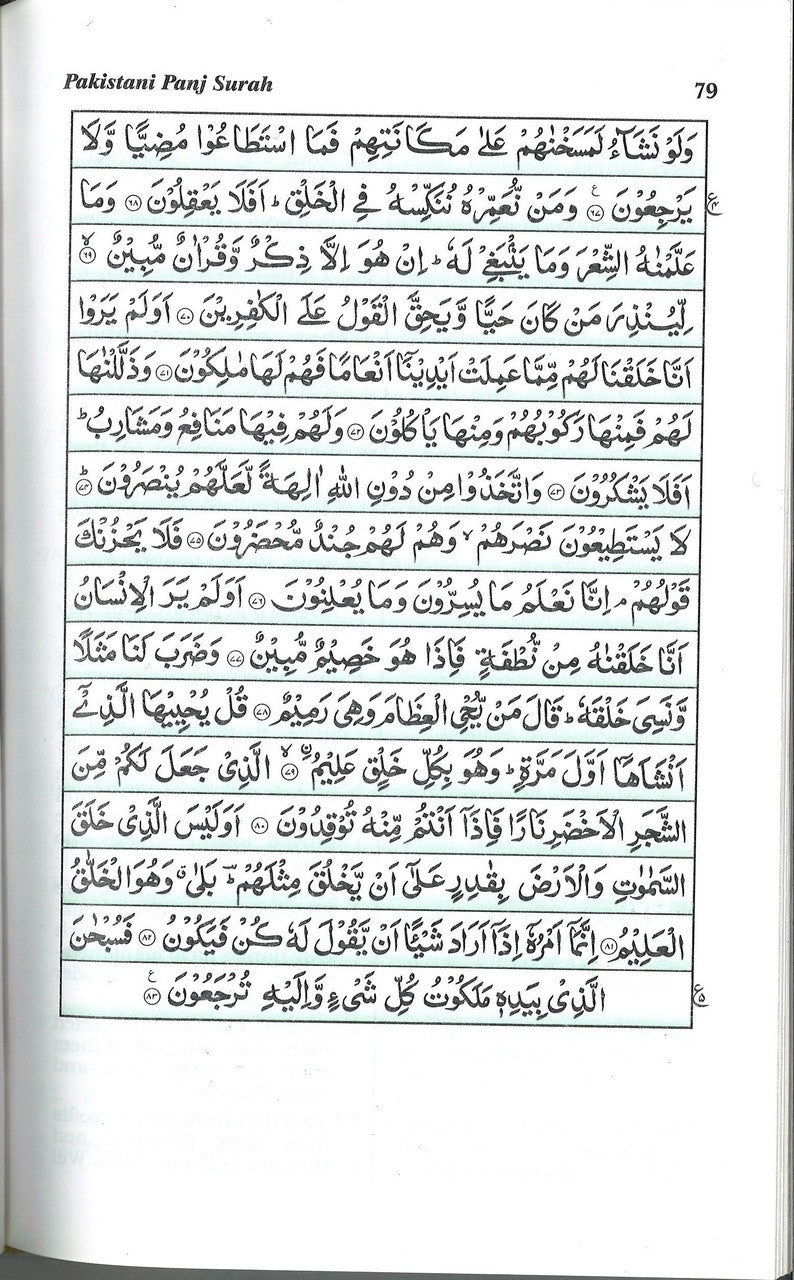 Pakistani Panj Surah
79
وَلَوْ نَشَآءُ لَمَسَخْنٰهُمْ عَلٰى مَكَانَتِهِمْ فَمَا اسْتَطَاعُوْا مُضِيًّا وَّلَا
يَرْجِعُوْنَ ﴿۶۷﴾ ع وَمَنْ نُّعَمِّرْهُ نُنَكِّسْهُ فِى الْخَلْقِ ؕ اَفَلَا يَعْقِلُوْنَ ﴿۶۸﴾ وَمَا
عَلَّمْنٰهُ الشِّعْرَ وَمَا يَنْۢبَغِىْ لَهٗ ؕ اِنْ هُوَ اِلَّا ذِكْرٌ وَّقُرْاٰنٌ مُّبِيْنٌ ﴿۶۹﴾ ۙ
لِّيُنْذِرَ مَنْ كَانَ حَيًّا وَّيَحِقَّ الْقَوْلُ عَلَى الْكٰفِرِيْنَ ﴿۷۰﴾ اَوَلَمْ يَرَوْا
اَنَّا خَلَقْنَا لَهُمْ مِّمَّا عَمِلَتْ اَيْدِيْنَاۤ اَنْعَامًا فَهُمْ لَهَا مٰلِكُوْنَ ﴿۷۱﴾ وَذَلَّلْنٰهَا
لَهُمْ فَمِنْهَا رَكُوْبُهُمْ وَمِنْهَا يَاْكُلُوْنَ ﴿۷۲﴾ وَلَهُمْ فِيْهَا مَنَافِعُ وَمَشَارِبُ ؕ
اَفَلَا يَشْكُرُوْنَ ﴿۷۳﴾ وَاتَّخَذُوْا مِنْ دُوْنِ اللّٰهِ اٰلِهَةً لَّعَلَّهُمْ يُنْصَرُوْنَ ﴿۷۴﴾ ؕ
لَا يَسْتَطِيْعُوْنَ نَصْرَهُمْ ۙ وَهُمْ لَهُمْ جُنْدٌ مُّحْضَرُوْنَ ﴿۷۵﴾ فَلَا يَحْزُنْكَ
قَوْلُهُمْ ۘ اِنَّا نَعْلَمُ مَا يُسِرُّوْنَ وَمَا يُعْلِنُوْنَ ﴿۷۶﴾ اَوَلَمْ يَرَ الْاِنْسَانُ
اَنَّا خَلَقْنٰهُ مِنْ نُّطْفَةٍ فَاِذَا هُوَ خَصِيْمٌ مُّبِيْنٌ ﴿۷۷﴾ وَضَرَبَ لَنَا مَثَلًا
وَّنَسِىَ خَلْقَهٗ ؕ قَالَ مَنْ يُّحْىِ الْعِظَامَ وَهِىَ رَمِيْمٌ ﴿۷۸﴾ قُلْ يُحْيِيْهَا الَّذِىْۤ
اَنْشَاَهَاۤ اَوَّلَ مَرَّةٍ ؕ وَهُوَ بِكُلِّ خَلْقٍ عَلِيْمُ ۨ ﴿۷۹﴾ ۙ الَّذِىْ جَعَلَ لَكُمْ مِّنَ
الشَّجَرِ الْاَخْضَرِ نَارًا فَاِذَاۤ اَنْتُمْ مِّنْهُ تُوْقِدُوْنَ ﴿۸۰﴾ اَوَلَيْسَ الَّذِىْ خَلَقَ
السَّمٰوٰتِ وَالْاَرْضَ بِقٰدِرٍ عَلٰٓى اَنْ يَّخْلُقَ مِثْلَهُمْ ؕ بَلٰى ۗ وَهُوَ الْخَلّٰقُ
الْعَلِيْمُ ﴿۸۱﴾ اِنَّمَاۤ اَمْرُهٗۤ اِذَاۤ اَرَادَ شَيْـًٔا اَنْ يَّقُوْلَ لَهٗ كُنْ فَيَكُوْنُ ﴿۸۲﴾ فَسُبْحٰنَ
الَّذِىْ بِيَدِهٖ مَلَكُوْتُ كُلِّ شَىْءٍ وَّاِلَيْهِ تُرْجَعُوْنَ ﴿۸۳﴾ ع